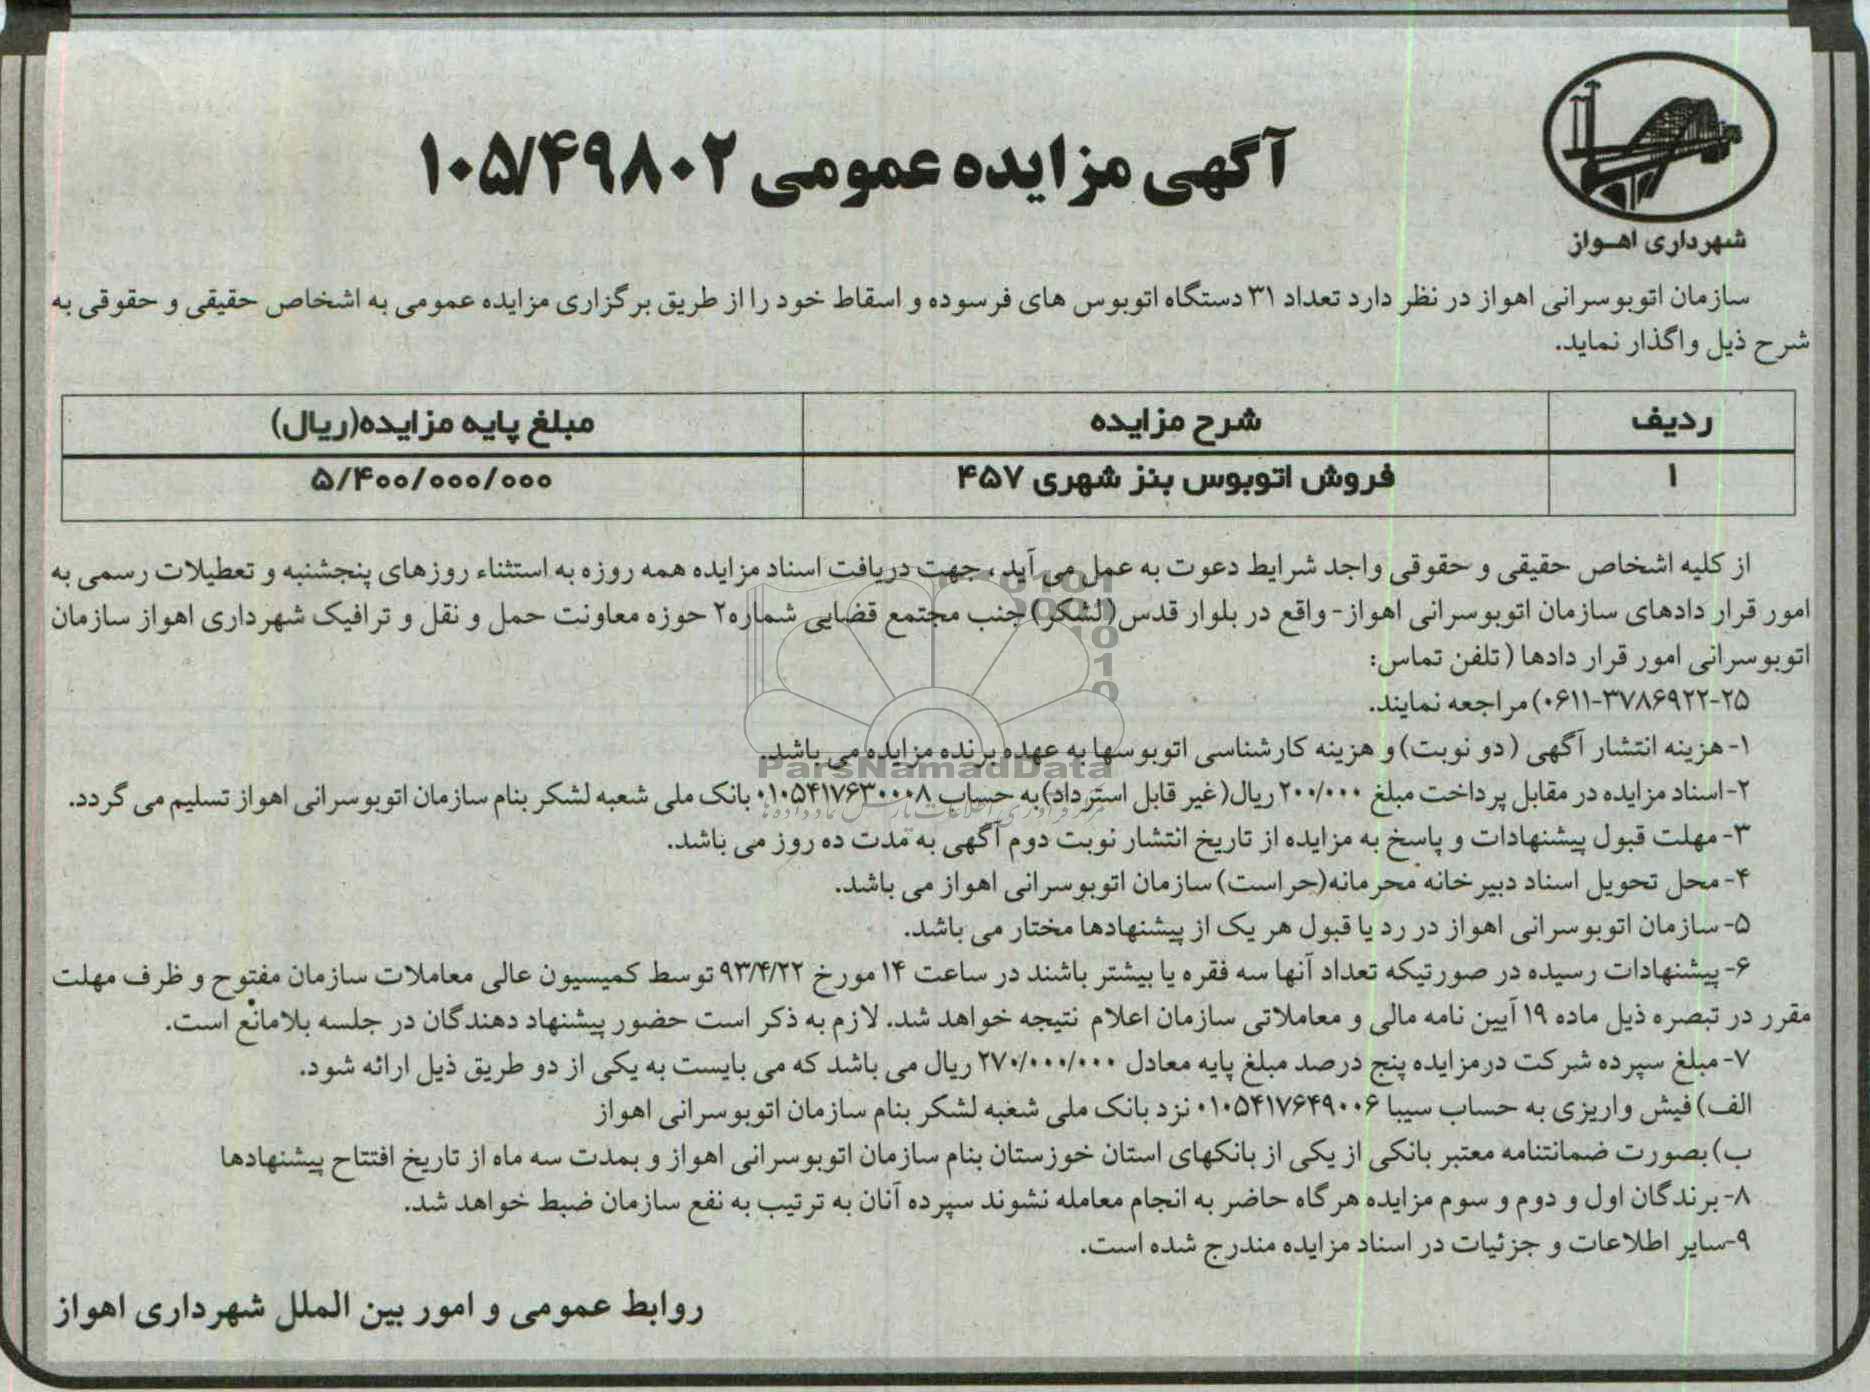 شهرداری اهواز
آگهی مزایده عمومی ۱۰۵/۴۹۸۰۲
سازمان اتوبوسرانی اهواز در نظر دارد تعداد ۳۱ دستگاه اتوبوس های فرسوده و اسقاط خود را از طریق برگزاری مزایده عمومی به اشخاص حقیقی و حقوقی به
شرح ذیل واگذار نماید.
ردیف شرح مزایده مبلغ پایه مزایده(ریال)
۱ فروش اتوبوس بنز شهری ۴۵۷ ۵/۴۰۰/۰۰۰/۰۰۰
از کلیه اشخاص حقیقی و حقوقی واجد شرایط دعوت به عمل می آید ، جهت دریافت اسناد مزایده همه روزه به استثناء روزهای پنجشنبه و تعطیلات رسمی به
امور قرار دادهای سازمان اتوبوسرانی اهواز- واقع در بلوار قدس(لشکر) جنب مجتمع قضایی شماره۲ حوزه معاونت حمل و نقل و ترافیک شهرداری اهواز سازمان
اتوبوسرانی امور قرار دادها ( تلفن تماس:
۲۵-۳۷۸۶۹۲۲-۰۶۱۱) مراجعه نمایند.
۱- هزینه انتشار آگهی ( دو نوبت) و هزینه کارشناسی اتوبوسها به عهده برنده مزایده می باشد.
ParsNamadData
۲-اسناد مزایده در مقابل پرداخت مبلغ ۲۰۰/۰۰۰ ریال(غیر قابل استرداد) به حساب ۰۱۰۵۴۱۷۶۳۰۰۰۸ بانک ملی شعبه لشکر بنام سازمان اتوبوسرانی اهواز تسلیم می گردد.
۳- مهلت قبول پیشنهادات و پاسخ به مزایده از تاریخ انتشار نوبت دوم آگهی به مدت ده روز می باشد.
۴- محل تحویل اسناد دبیرخانه محرمانه(حراست) سازمان اتوبوسرانی اهواز می باشد.
۵- سازمان اتوبوسرانی اهواز در رد یا قبول هر یک از پیشنهادها مختار می باشد.
۶- پیشنهادات رسیده در صورتیکه تعداد آنها سه فقره یا بیشتر باشند در ساعت ۱۴ مورخ ۹۳/۴/۲۲ توسط کمیسیون عالی معاملات سازمان مفتوح و ظرف مهلت
مقرر در تبصره ذیل ماده ۱۹ آیین نامه مالی و معاملاتی سازمان اعلام نتیجه خواهد شد. لازم به ذکر است حضور پیشنهاد دهندگان در جلسه بلامانع است.
۷- مبلغ سپرده شرکت درمزایده پنج درصد مبلغ پایه معادل ۲۷۰/۰۰۰/۰۰۰ ریال می باشد که می بایست به یکی از دو طریق ذیل ارائه شود.
الف) فیش واریزی به حساب سیبا ۰۱۰۵۴۱۷۶۴۹۰۰۶ نزد بانک ملی شعبه لشکر بنام سازمان اتوبوسرانی اهواز
ب) بصورت ضمانتنامه معتبر بانکی از یکی از بانکهای استان خوزستان بنام سازمان اتوبوسرانی اهواز و بمدت سه ماه از تاریخ افتتاح پیشنهادها
۸- برندگان اول و دوم و سوم مزایده هرگاه حاضر به انجام معامله نشوند سپرده آنان به ترتیب به نفع سازمان ضبط خواهد شد.
۹-سایر اطلاعات و جزئیات در اسناد مزایده مندرج شده است.
روابط عمومی و امور بین الملل شهرداری اهواز